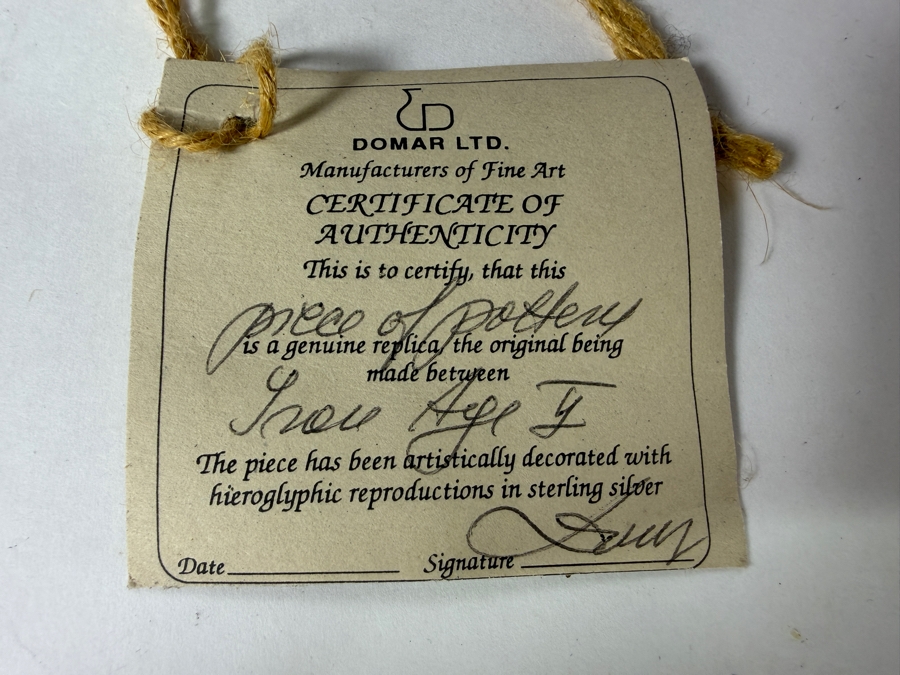 DOMAR LTD.
Manufacturers of Fine Art
CERTIFICATE OF
AUTHENTICITY
This is to certify, that this
piece of pottery
is a genuine replica, the original being
made between
Iron Age II
The piece has been artistically decorated with
hieroglyphic reproductions in sterling silver
Date Signature